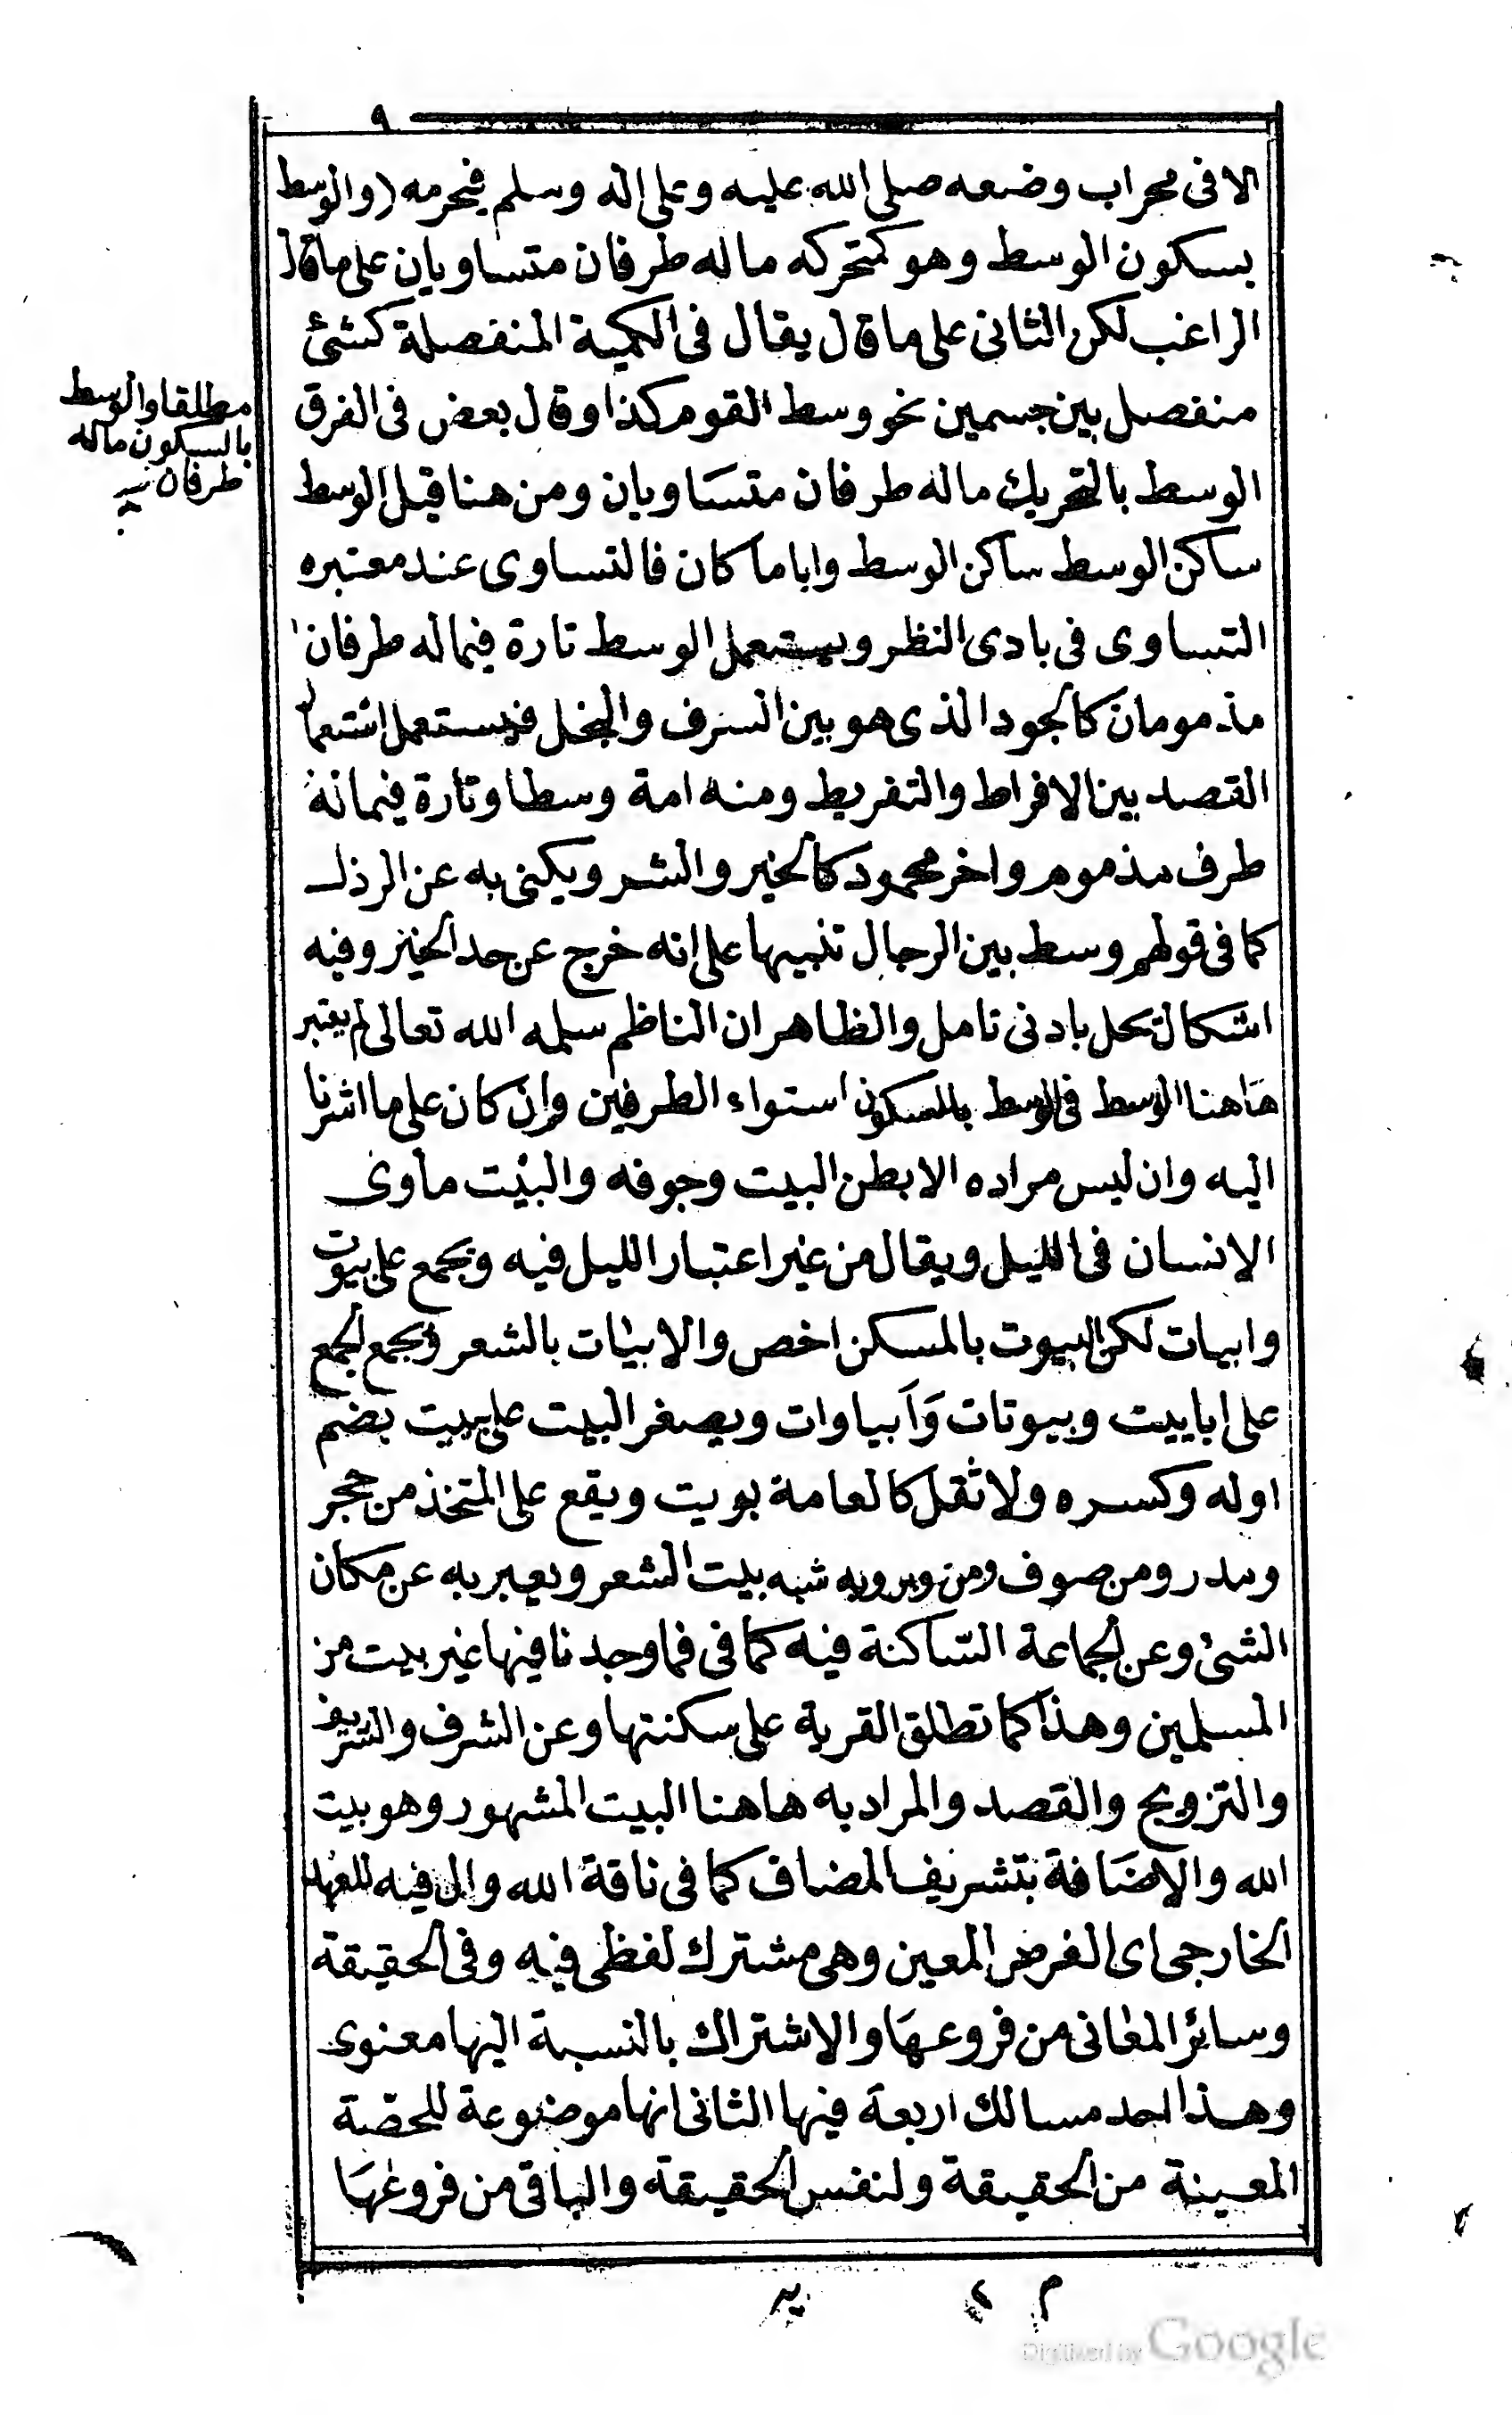 ٩
الا فى محراب وضعه صلى الله عليه وعلى اله وسلم فيحرمه (والوسط
بسكون الوسط وهو كمتحركه ماله طرفان متساويان على ما قال
الراغب لكن الثانى على ما قال يقال فى الكمية المنفصلة كشئ
منفصل بين جسمين نحو وسط القوم كذا وقال بعض فى الفرق
الوسط بالتحريك ماله طرفان متساويان ومن هنا قيل الوسط
ساكن الوسط ساكن الوسط واياما كان فالتساوى عند معتبره
التساوى فى بادى النظر ويستعمل الوسط تارة فيما له طرفان
مذمومان كالجود الذى هو بين السرف والبخل فيستعمل استعمال
القصد بين الافراط والتفريط ومنه امة وسطا وتارة فيما له
طرف مذموم واخر محمود كالخير والشر ويكنى به عن الرذل
كما فى قولهم وسط بين الرجال تنبيها على انه خرج عن حد الخير وفيه
اشكال تحل بادنى تامل والظاهر ان الناظم سلمه الله تعالى لم يعتبر
هاهنا الوسط فى الوسط بالسكون استواء الطرفين وان كان على ما اشرنا
اليه وان ليس مراده الا بطن البيت وجوفه والبيت ماوى
الانسان فى الليل ويقال من غير اعتبار الليل فيه ويجمع على بيوت
وابيات لكن البيوت بالمسكن اخص والابيات بالشعر ويجمع الجمع
على اباييت وبيوتات وَاَبياوات ويصغر البيت على بييت بضم
اوله وكسره ولا تقل كالعامة بويت ويقع على المتخذ من حجر
ومدر ومن صوف ومن وبر وبه شبه بيت الشعر ويعبر به عن مكان
الشئ وعن الجماعة السّاكنة فيه كما فى فما وجدنا فيها غير بيت من
المسلمين وهذا كما تطلق القرية على سكنتها وعن الشرف والشريف
والتزويج والقصد والمراد به هاهنا البيت المشهور وهو بيت
الله والاضَافة بتشريف المضاف كما فى ناقة الله وال فيه للعهد
الخارجى اى الفرض المعين وهى مشترك لفظى فيه وفى الحقيقة
وسائر المعانى من فروعهَا والاشتراك بالنسبة اليها معنوى
وهذا احد مسالك اربعة فيها الثانى انها موضوعة للحصّة
المعينة من الحقيقة ولنفس الحقيقة والباقى من فروعهَا
مطلقا والوسط
بالسكون ماله
طرفان
Digitized by Google